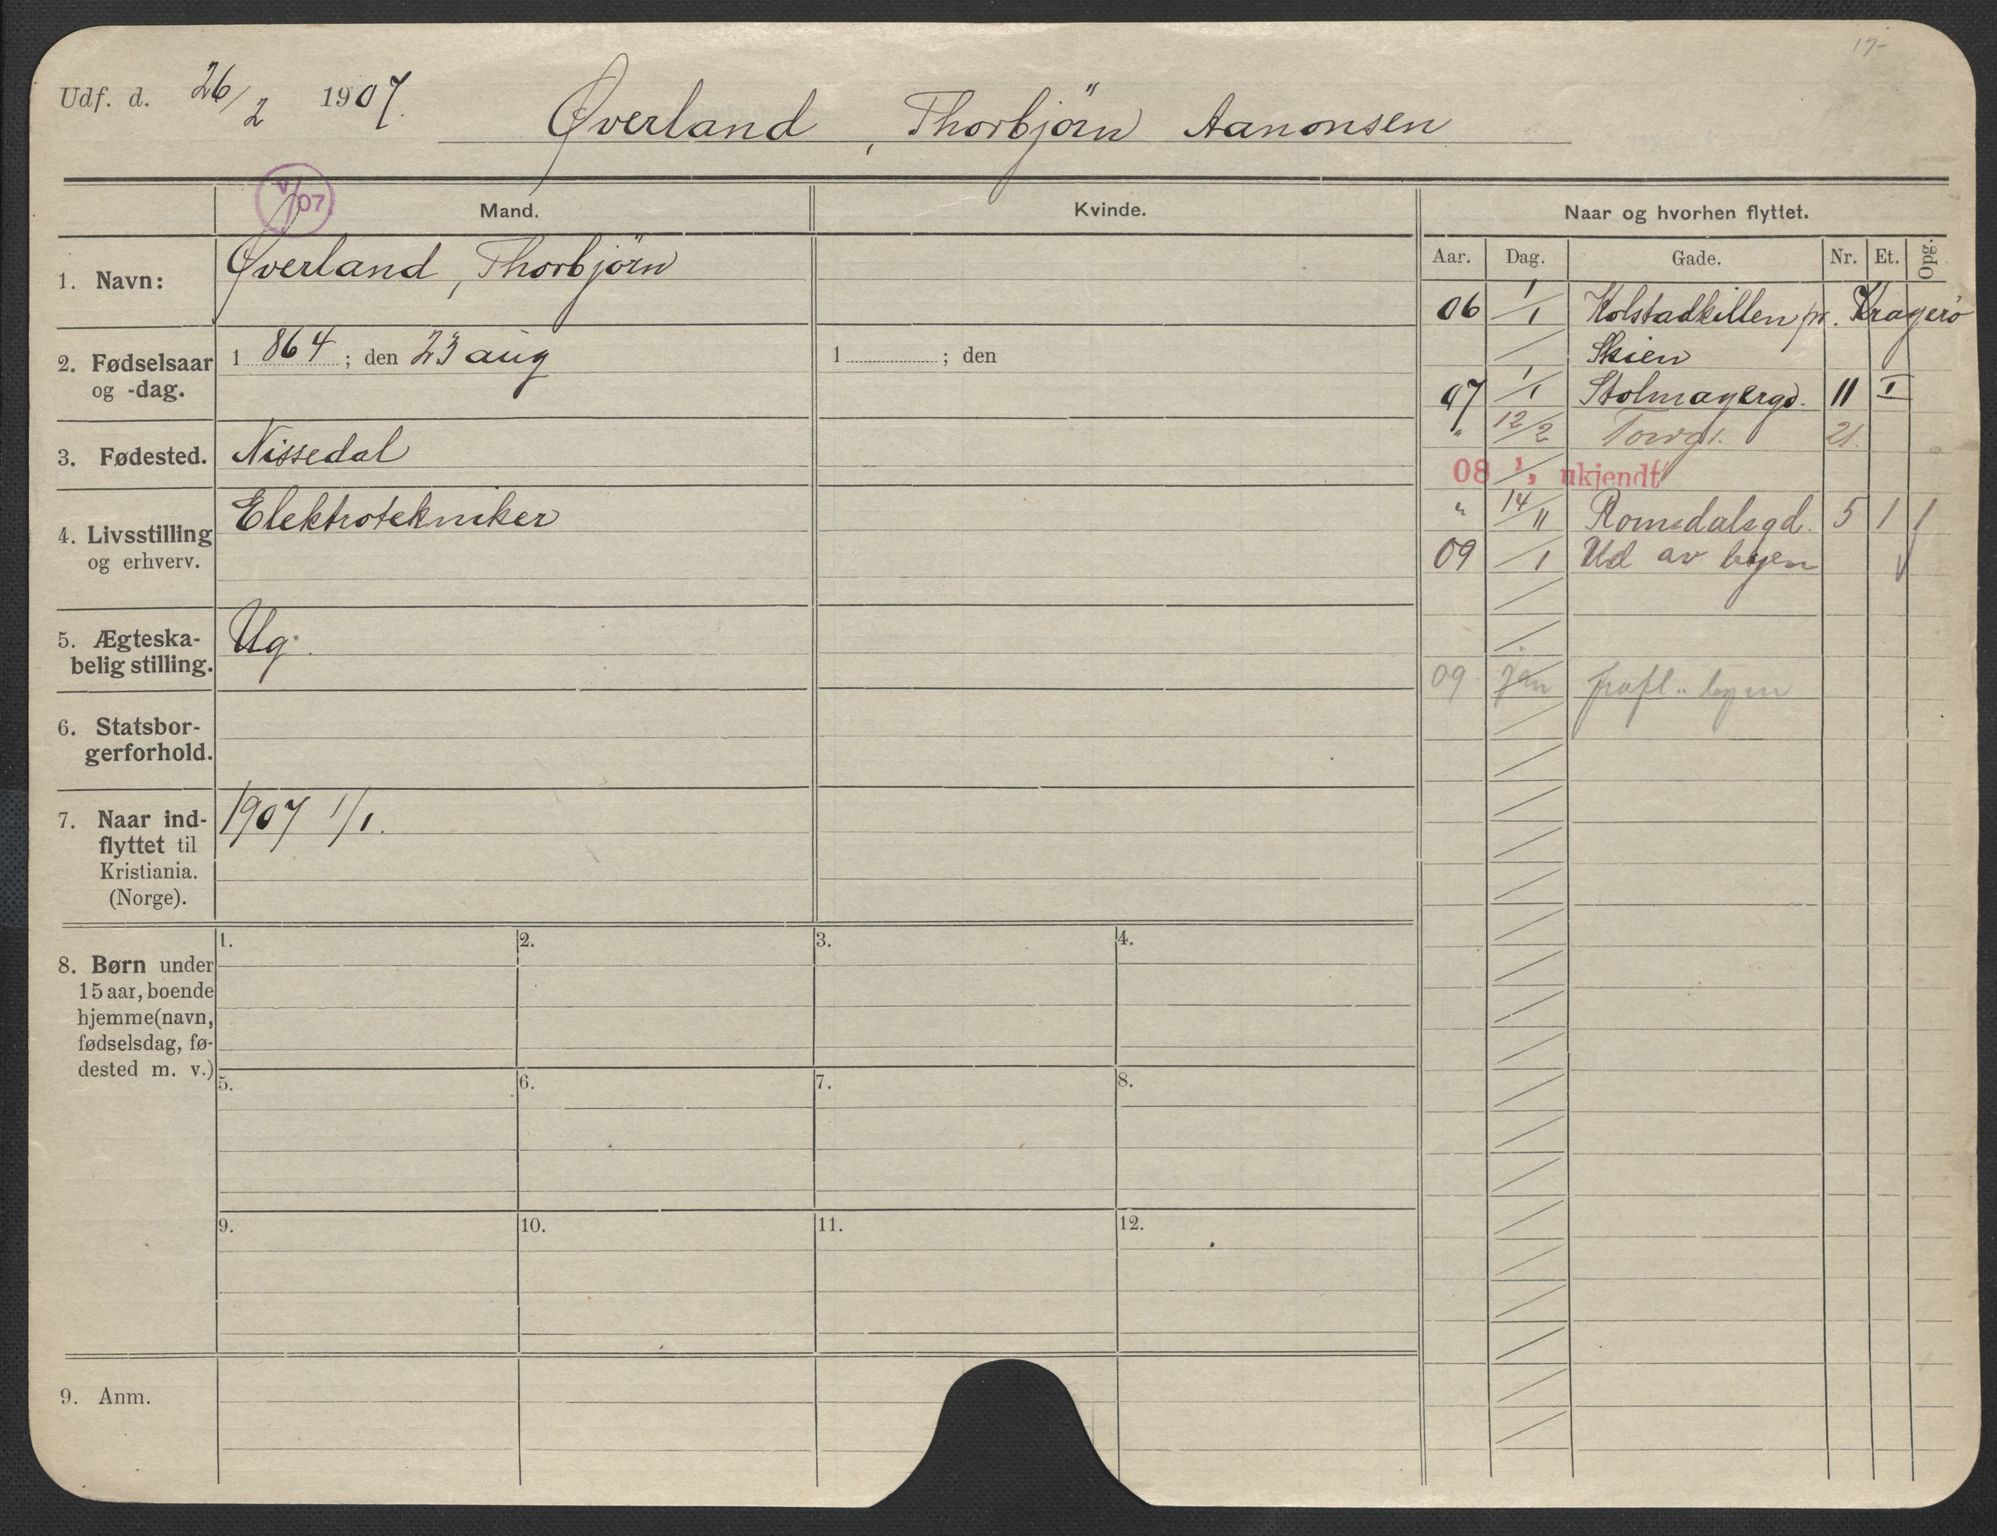 17-
Udf. d. 26/2 1907. Øverland, Thorbjörn Aanonsen
V/07
Mand.
Kvinde.
Naar og hvorhen flyttet.
Aar. Dag. Gade. Nr. Et. Opg.
1. Navn: Øverland, Thorbjörn
2. Fødselsaar og -dag.
1 864; den 23 aug
1 ; den
3. Fødested. Nissedal
4. Livsstilling og erhverv.
Elektrotekniker
5. Ægteska-
belig stilling.
Ug.
6. Statsbor-
gerforhold.
7. Naar ind-
flyttet til
Kristiania.
(Norge).
1907 1/1.
8. Børn under
15 aar, boende
hjemme (navn,
fødselsdag, fø-
dested m. v.)
1. 2. 3. 4.
5. 6. 7. 8.
9. 10. 11. 12.
9. Anm.
06 1/1 Kolstadkillen pr. Kragerö
Skien
07 1/1 Stolmagergd. 11 I
" 12/2 Torvgt. 21.
08 1/1 ukjendt
" 14/11 Romsdalsgd. 5 1 1
09 /1 Ud av byen
09 jan byen